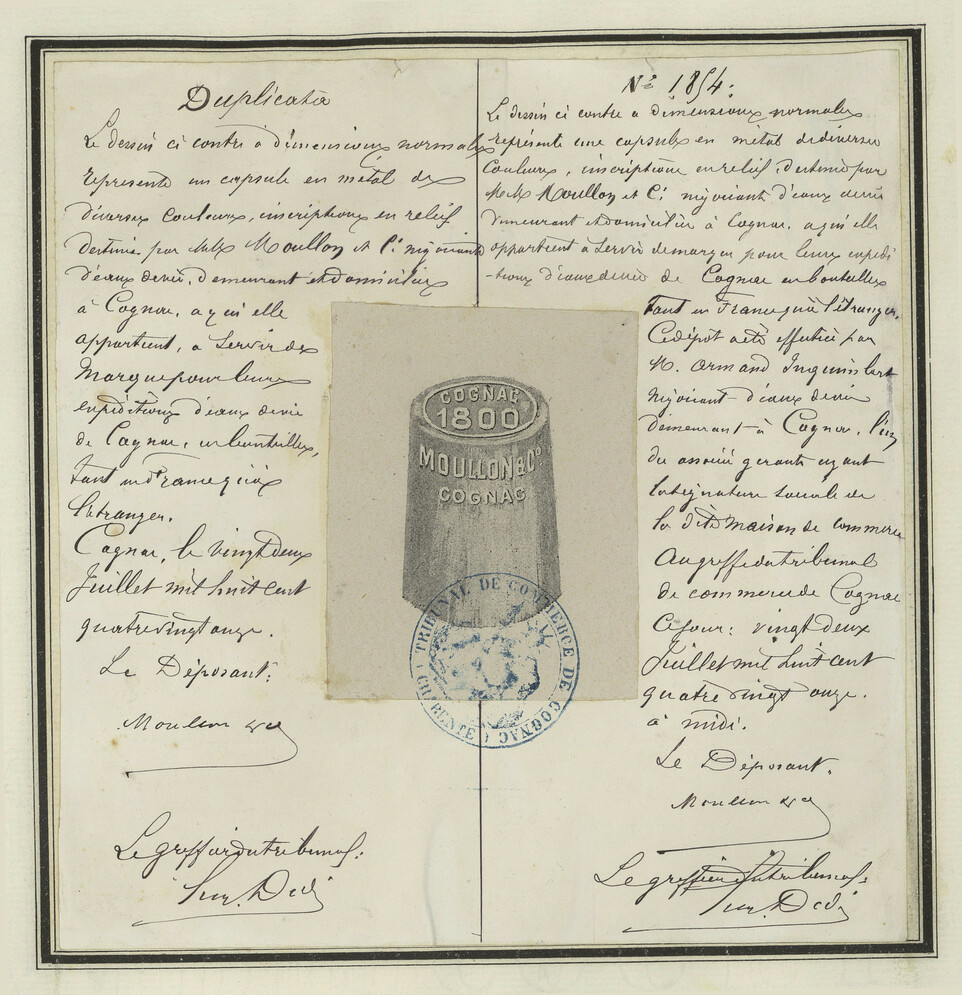 Duplicata
Le dessin ci contre a dimensions normales
représente un capsule en métal de
diverses couleurs, inscriptions en relief
destinée par MM Moullon et Cie négociants
d'eaux devie, demeurant et domiciliés
à Cognac, a qu'elle
appartient, a Servir de
Marque pour leurs
expéditions d'eaux devie
de Cognac, en bouteilles,
tant en France qu'à
l'étranger.
Cognac, le vingt deux
Juillet mil huit cent
quatre vingt onze.
Le Déposant:
Moullon & Cie
Le greffier du tribunal:
No 1854:
Le dessin ci contre a dimensions normales
représente une capsule en métal de diverses
Couleurs, inscriptions en relief, destinée par
MM Moullon et Cie négociants d'eaux devie
demeurant et domiciliés à Cognac, a qu'elle
appartient a Servir de marque pour leurs expédi
-tions d'eaux devie de Cognac en bouteilles
tant en France qu'à l'étranger.
Ce dépôt a été effectué par
M. Armand Inquimbert
Négociant d'eaux devie
demeurant à Cognac, l'un
des associés gerants ayant
la signature sociale de
la dite maison de commerce
Au greffe du tribunal
de commerce de Cognac
Ce jour: vingt deux
Juillet mil huit cent
quatre vingt onze.
à midi.
Le Déposant.
Moullon & Cie
Le greffier du tribunal:
COGNAC
1800
MOULLON & Co
COGNAC
TRIBUNAL DE COMMERCE DE COGNAC
(CHARENTE)